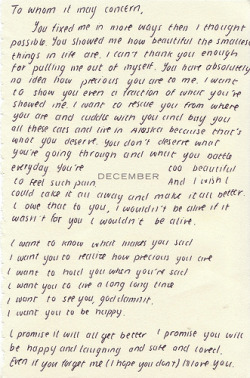 To whom it may concern,
You fixed me in more ways then i thought
possible. You showed me how beautiful the smallest
things in life are. I can't thank you enough
for pulling me out of myself. You have absolutely
no idea how precious you are to me. I want
to show you even a fraction of what you've
showed me. I want to rescue you from where
you are and cuddle with you and buy you
all these cats and live in Alaska because that's
what you deserve. You don't deserve what
you're going through and what you battle
everyday. You're too beautiful
DECEMBER
to feel such pain. And I wish I
could take it all away and make it all better.
I owe that to you, I wouldn't be alive if it
wasn't for you I wouldn't be alive.
I want to know what makes you sad
I want you to realize how precious you are
I want to hold you when you're sad
I want you to live a long long time
I want to see you, god damnit.
I want you to be happy.
I promise it will all get better I promise you will
be happy and laughing and safe and loved.
Even if you forget me (I hope you don't) I'll love you.